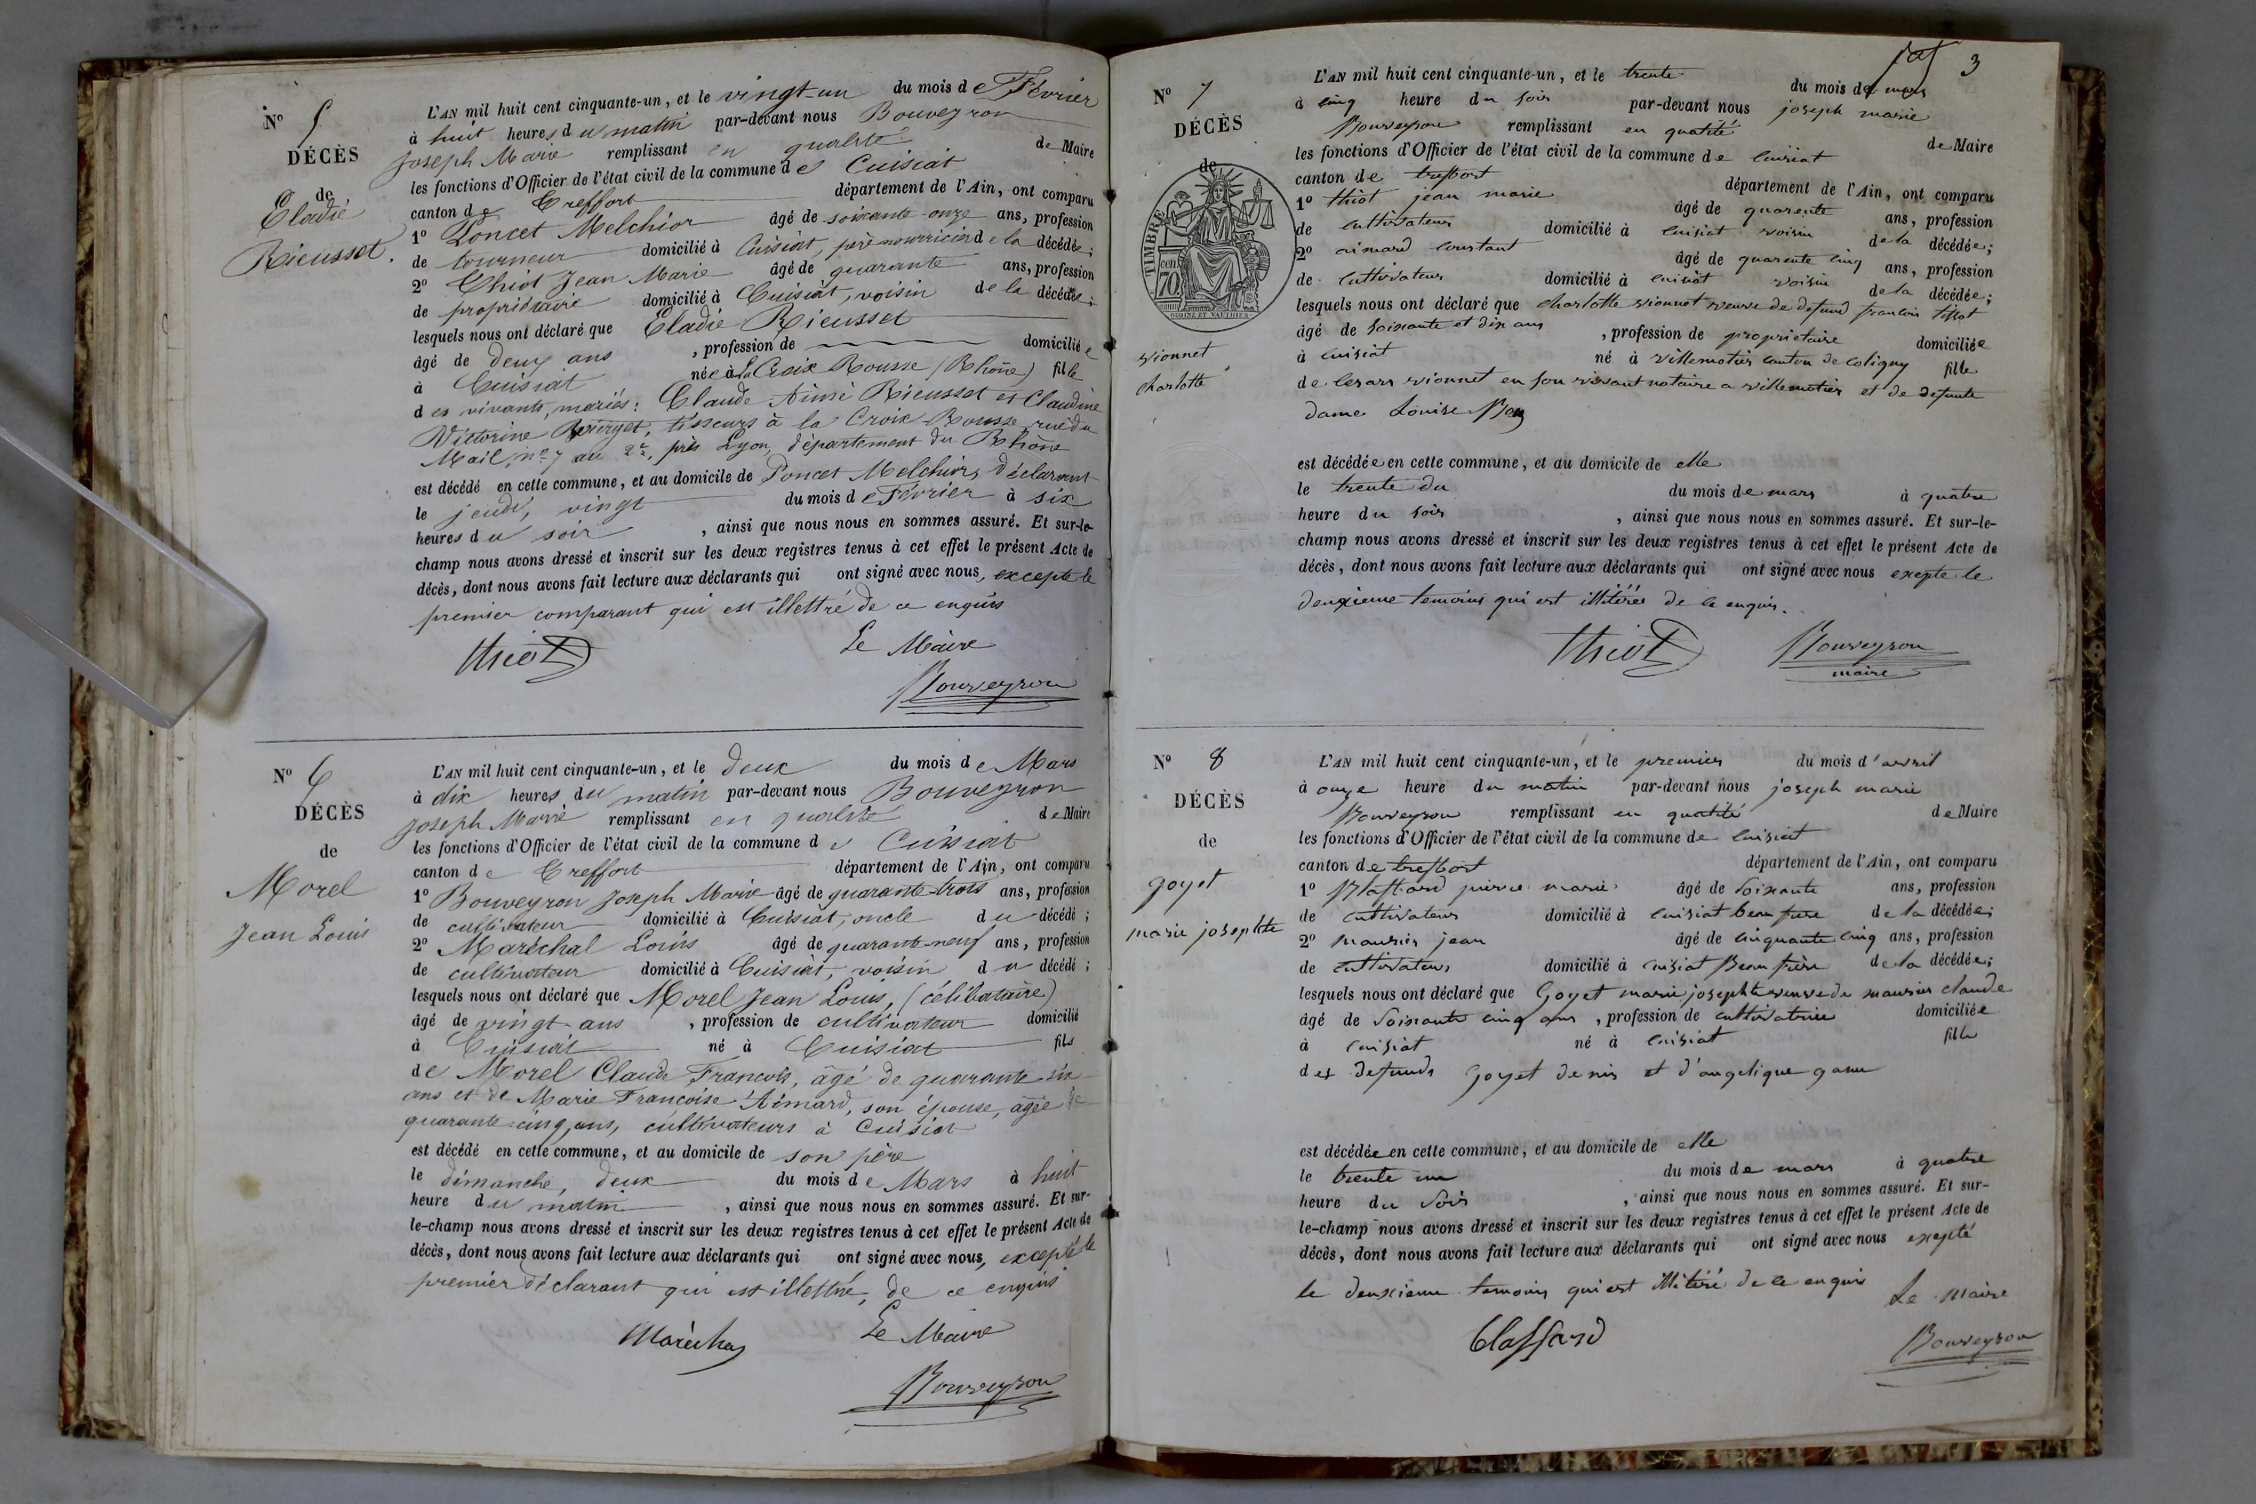 N° 5
DÉCÈS
de
Eladie
Rieusset.
L'AN mil huit cent cinquante-un, et le vingt-un du mois de Février
à huit heures du matin par-devant nous Bouveyron
Joseph Marie remplissant en qualité de Maire
les fonctions d'Officier de l'état civil de la commune de Cuisiat
canton de Treffort département de l'Ain, ont comparu
1° Poncet Melchior âgé de soixante-onze ans, profession
de tourneur domicilié à Cuisiat, père nourricier de la décédée;
2° Thiot Jean Marie âgé de quarante ans, profession
de propriétaire domicilié à Cuisiat, voisin de la décédée;
lesquels nous ont déclaré que Eladie Rieusset
âgé de deux ans, profession de domiciliée
à Cuisiat née à la Croix Rousse (Rhône) fille
des vivants, mariés: Claude Aimé Rieusset et Claudine
Victorine, tisseurs à la Croix Rousse, rue du
Mail, n° 7 au 2e, près Lyon, département du Rhône
est décédé en cette commune, et au domicile de Poncet Melchior, déclarant
le jeudi, vingt du mois de Février à six
heures du soir, ainsi que nous nous en sommes assuré. Et sur-le-
champ nous avons dressé et inscrit sur les deux registres tenus à cet effet le présent Acte de
décès, dont nous avons fait lecture aux déclarants qui ont signé avec nous, excepté le
premier comparant qui est illettré de ce enquis
Thiot Le Maire
Bouveyron
N° 6
DÉCÈS
de
Morel
Jean Louis
L'AN mil huit cent cinquante-un, et le deux du mois de Mars
à dix heures du matin par-devant nous Bouveyron
Joseph Marie remplissant en qualité de Maire
les fonctions d'Officier de l'état civil de la commune de Cuisiat
canton de Treffort département de l'Ain, ont comparu
1° Bouveyron Joseph Marie âgé de quarante-trois ans, profession
de cultivateur domicilié à Cuisiat, oncle du décédé;
2° Maréchal Louis âgé de quarante-neuf ans, profession
de cultivateur domicilié à Cuisiat, voisin du décédé;
lesquels nous ont déclaré que Morel Jean Louis, (célibataire)
âgé de vingt-ans, profession de cultivateur domicilié
à Cuisiat né à Cuisiat fils
de Morel Claude François, âgé de quarante-six
ans et de Marie Françoise Aimard, son épouse, âgée de
quarante-cinq ans, cultivateurs à Cuisiat
est décédé en cette commune, et au domicile de son père
le dimanche, deux du mois de Mars à huit
heure du matin, ainsi que nous nous en sommes assuré. Et sur-
le-champ nous avons dressé et inscrit sur les deux registres tenus à cet effet le présent Acte de
décès, dont nous avons fait lecture aux déclarants qui ont signé avec nous, excepté le
premier déclarant qui est illettré, de ce enquis
Maréchal Le Maire
Bouveyron
3
N° 7
DÉCÈS
de
TIMBRE
70 cen
vionnet
charlotte
L'AN mil huit cent cinquante-un, et le trente du mois de mars
à cinq heure du soir par-devant nous joseph marie
Bouveyron remplissant en qualité de Maire
les fonctions d'Officier de l'état civil de la commune de cuisiat
canton de treffort département de l'Ain, ont comparu
1° thiot jean marie âgé de quarente ans, profession
de cultivateur domicilié à cuisiat voisin de la décédée;
2° aimard constant âgé de quarente cinq ans, profession
de cultivateur domicilié à cuisiat voisin de la décédée;
lesquels nous ont déclaré que charlotte vionnet veuve de defund francois tissot
âgé de soixante et dix ans, profession de proprietaire domiciliée
à cuisiat né à villemotier canton de coligny fille
de cesars vionnet en son vivant notaire a villemotier et de defunte
dame Louise
est décédée en cette commune, et au domicile de elle
le trente du du mois de mars à quatre
heure du soir, ainsi que nous nous en sommes assuré. Et sur-le-
champ nous avons dressé et inscrit sur les deux registres tenus à cet effet le présent Acte de
décès, dont nous avons fait lecture aux déclarants qui ont signé avec nous exepte le
deuxieme temoins qui est illitéré de ce enquis.
Thiot Bouveyron
maire
N° 8
DÉCÈS
de
goyet
marie josephte
L'AN mil huit cent cinquante-un, et le premier du mois d'avril
à onze heure du matin par-devant nous joseph marie
Bouveyron remplissant en qualité de Maire
les fonctions d'Officier de l'état civil de la commune de cuisiat
canton de treffort département de l'Ain, ont comparu
1° Blaffard pierre marie âgé de soixante ans, profession
de cultivateur domicilié à cuisiat beau frere de la décédée;
2° maurier jean âgé de cinquante cinq ans, profession
de cultivateur domicilié à cuisiat Beau frère de la décédée;
lesquels nous ont déclaré que Goyet marie josephte veuve de maurier claude
âgé de soixante cinq ans, profession de cultivatrice domiciliée
à cuisiat né à cuisiat fille
des defunds goyet denis et d'angelique
est décédée en cette commune, et au domicile de elle
le trente un du mois de mars à quatre
heure du soir, ainsi que nous nous en sommes assuré. Et sur-
le-champ nous avons dressé et inscrit sur les deux registres tenus à cet effet le présent Acte de
décès, dont nous avons fait lecture aux déclarants qui ont signé avec nous exepté
le deuxieme temoins qui est illitéré de ce enquis
Le Maire
Blaffard Bouveyron